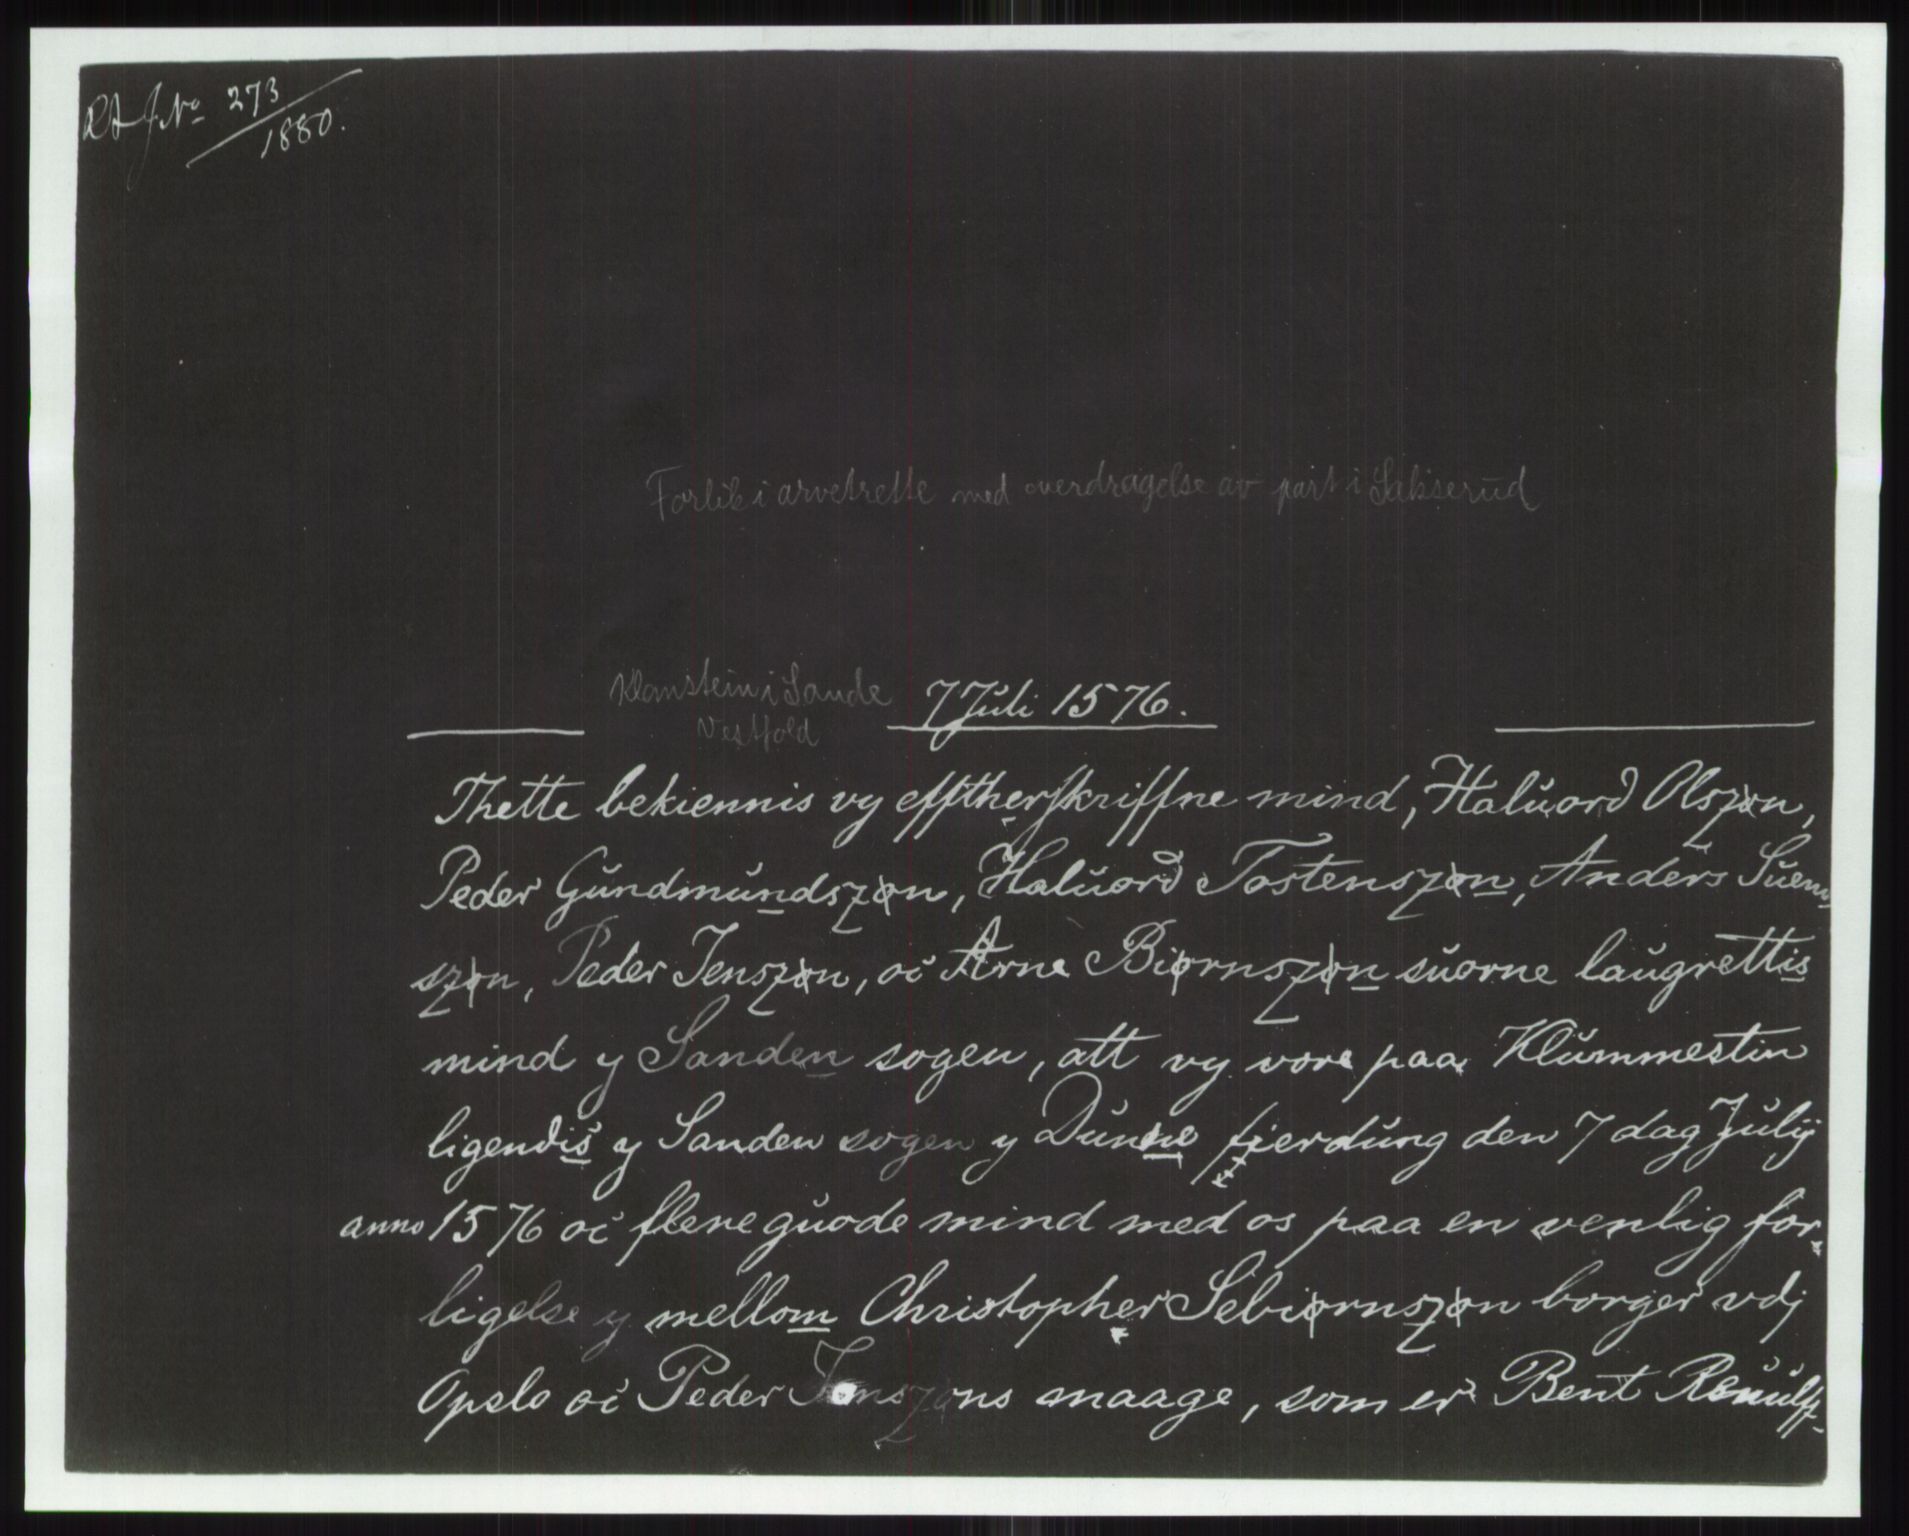 RA J. No 273/1880.
Forlik i arvetrette med overdragelse av part i Sakserud
Klomstein i Sande
Vestfold
7 Juli 1576.
Thette bekiennis vy efftherskriffne mind, Haluord Olszøn,
Peder Gundmundszøn, Haluord Tostenszøn, Anders Suend
szøn, Peder Jenszøn, oc Arne Biørnszøn suorne laugrettis
mind y Sanden sogen, att vy vore paa Klummestin
ligendis y Sanden sogen y Dunne fierdung den 7 dag Julij
anno 1576 oc flene guode mind med os paa en venlig for-
ligelse y mellom Christopher Sebiørnszøn borger vdj
Opslo oc Peder Jenszøns maage, som er Bent Reuulff-